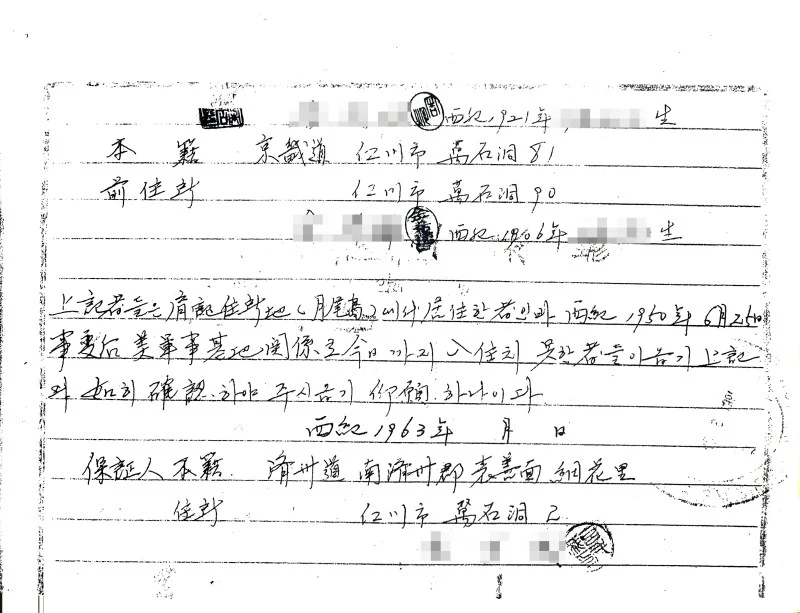 西紀 1921年 生
本 籍 京畿道 仁川市 萬石洞 81
前住所 仁川市 萬石洞 90
西紀 1906年 生
上記者들은 前記住所地(月尾島)에서 居住한 者인바 西紀 1950年 6月25日
事変后 美軍事基地 関係로 今日까지 入住치 못한 者들이옵기 上記
와 如히 確認하야 주시옵기 仰願하나이다
西紀 1963年 月 日
保証人 本籍 済州道 南済州郡 表善面 細花里
住所 仁川市 萬石洞 2